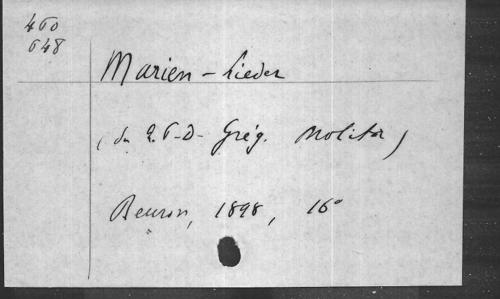 460
648
Marien - Lieder
(du R. P. D. Grég. Molitor)
Beuron, 1898, 16°